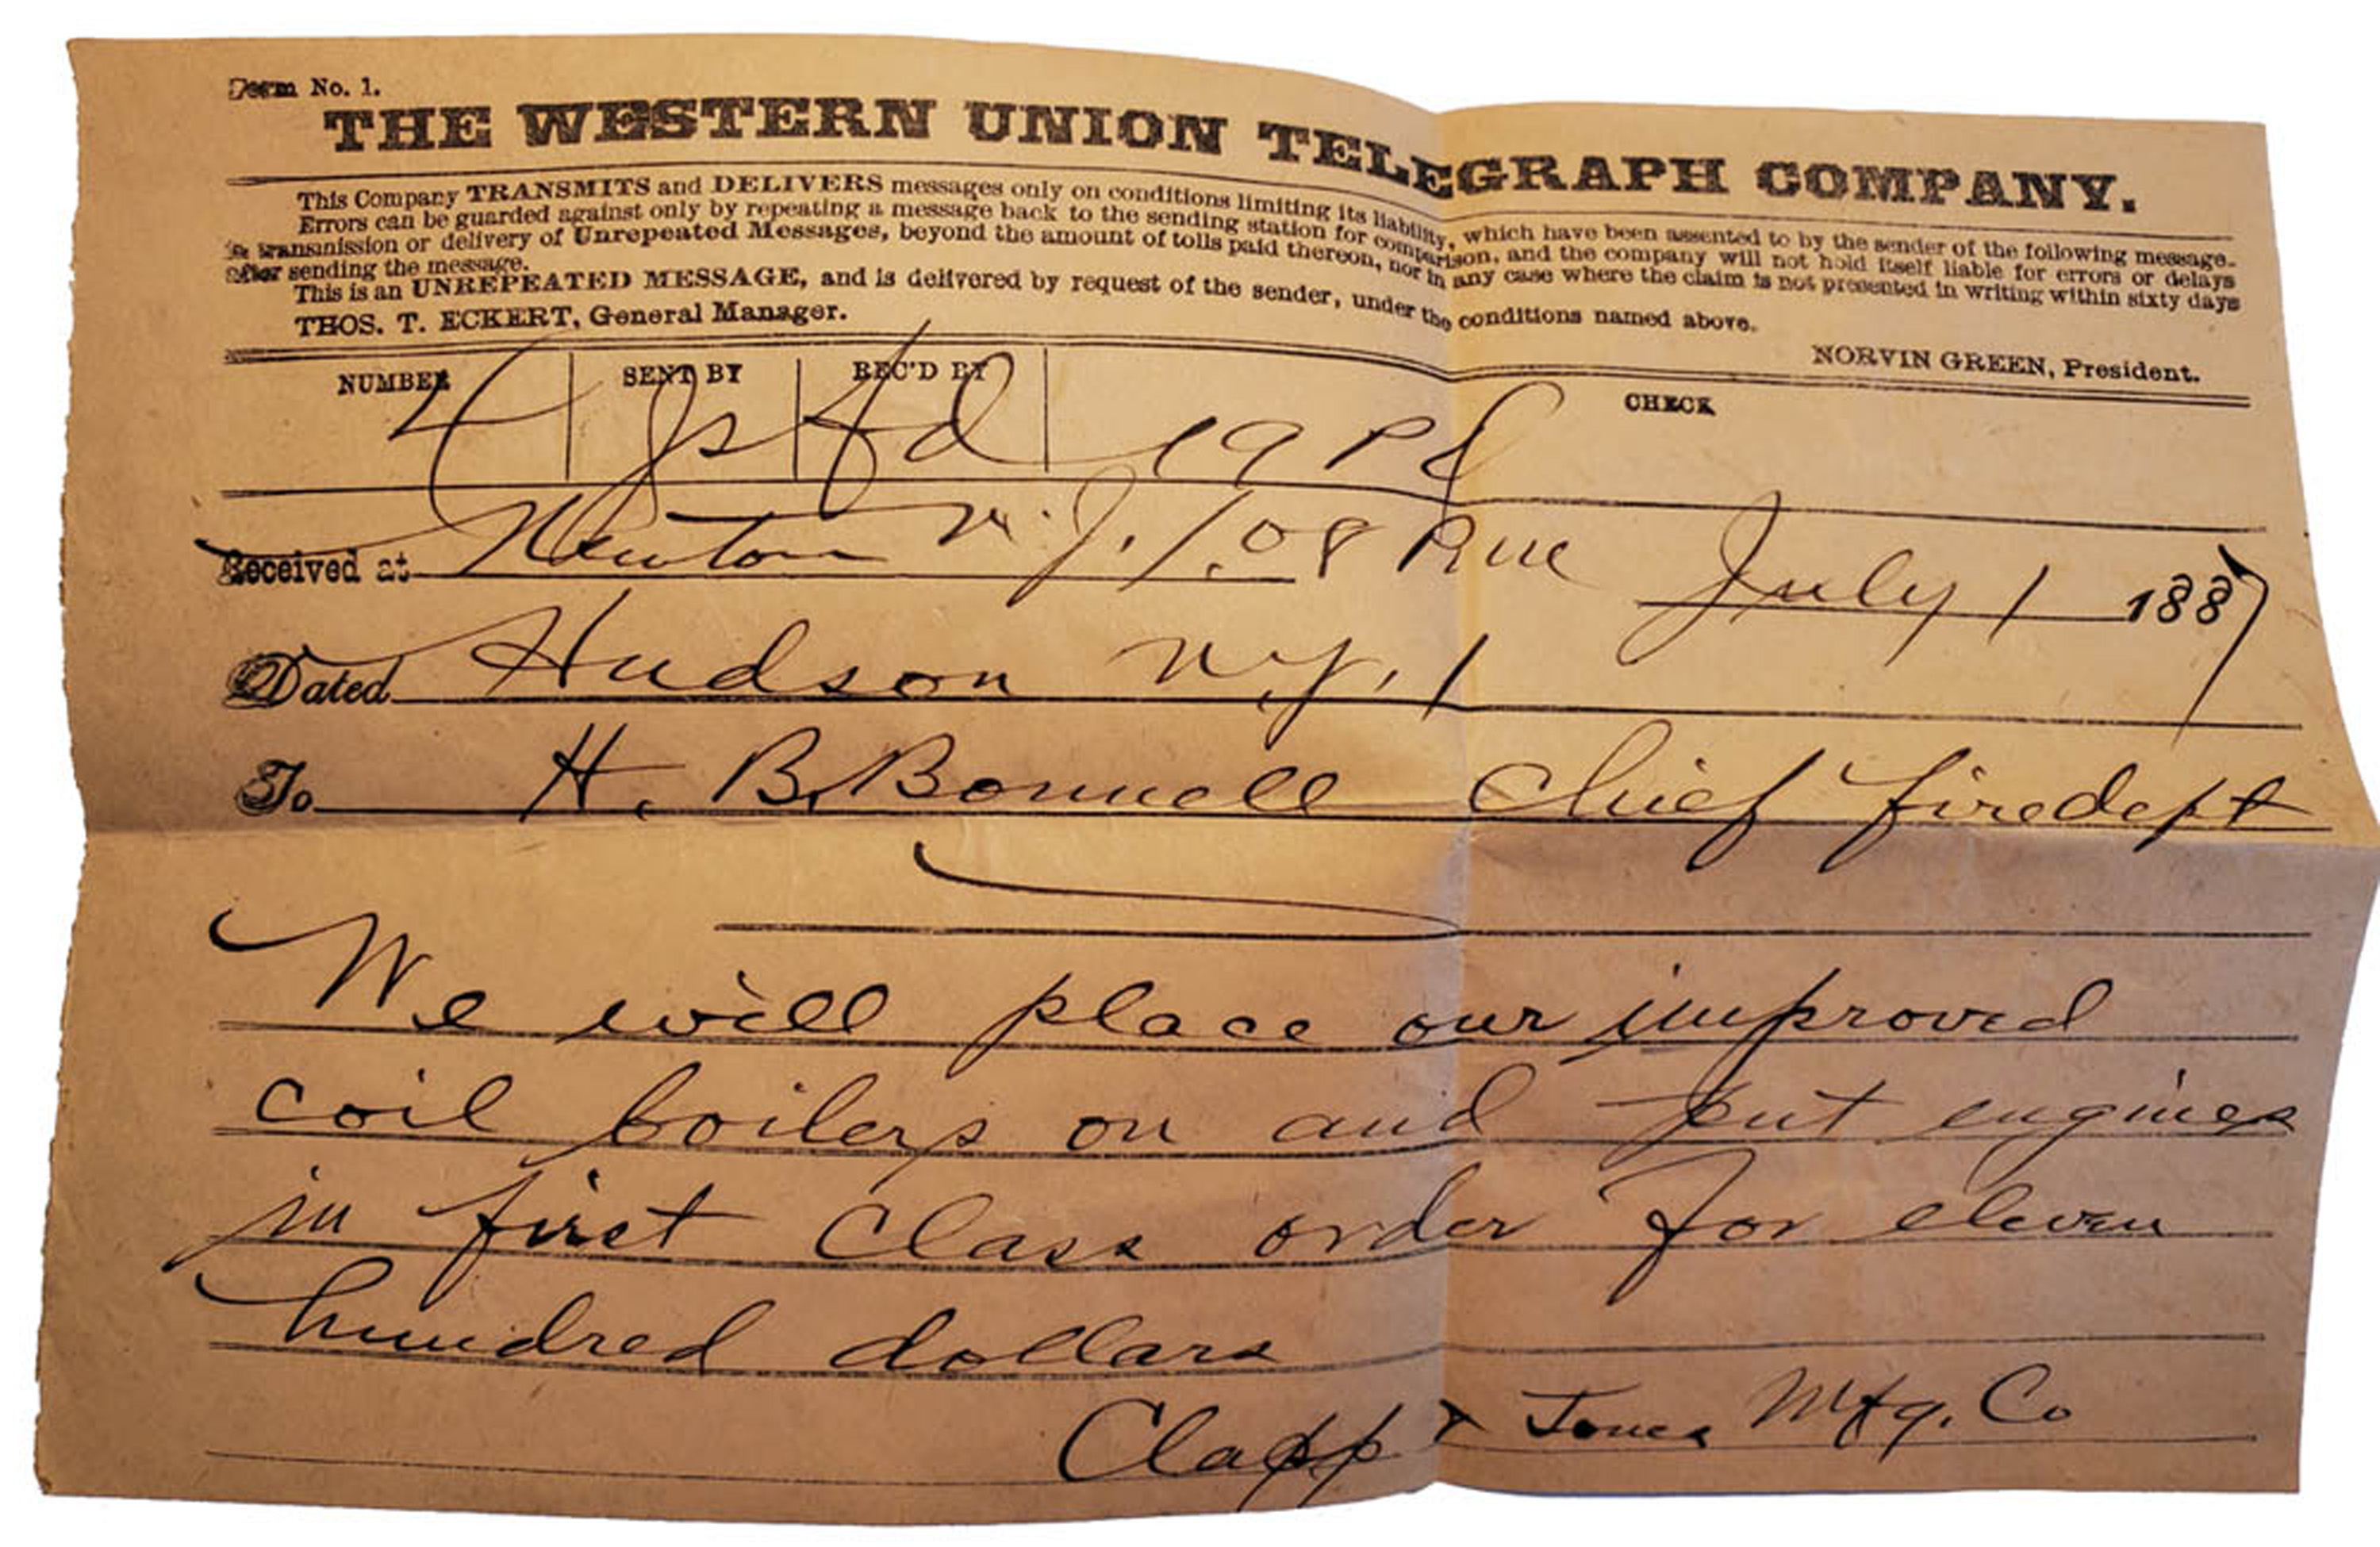 Form No. 1.
THE WESTERN UNION TELEGRAPH COMPANY.
This Company TRANSMITS and DELIVERS messages only on conditions limiting its liability, which have been assented to by the sender of the following message.
Errors can be guarded against only by repeating a message back to the sending station for comparison, and the company will not hold itself liable for errors or delays
in transmission or delivery of Unrepeated Messages, beyond the amount of tolls paid thereon, nor in any case where the claim is not presented in writing within sixty days
after sending the message.
This is an UNREPEATED MESSAGE, and is delivered by request of the sender, under the conditions named above.
THOS. T. ECKERT, General Manager.
NORVIN GREEN, President.
NUMBER SENT BY REC'D BY CHECK
4 19 Pd
Received at Newton N.J. 1.08 July 1 1887
Dated Hudson N.Y. 1
To H. B. Bonnell Chief firedept
We will place our improved
coil boilers on and put engines
in first class order for eleven
hundred dollars
Clapp & Jones Mfg. Co